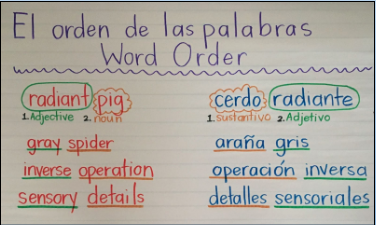 El orden de las palabras
Word Order
radiant pig
1. Adjective 2. noun
gray spider
inverse operation
sensory details
cerdo radiante
1. sustantivo 2. Adjetivo
araña gris
operación inversa
detalles sensoriales